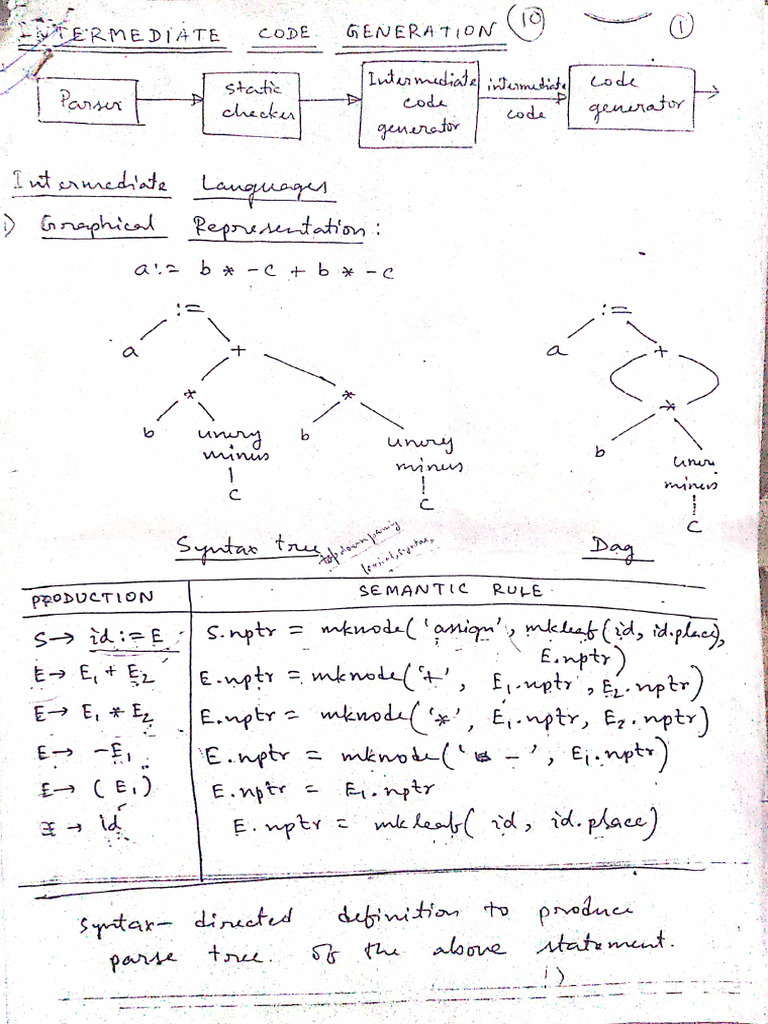 INTERMEDIATE CODE GENERATION (10) (1)
Parser
static
checker
Intermediate
code
generator
intermediate
code
code
generator
Intermediate Languages
i) Graphical Representation:
a := b * -c + b * -c
:=
a +
* *
b unary
minus
c
b unary
minus
c
:=
a +
*
b
minus
c
Syntax tree
top down parsing
Dag
PRODUCTION SEMANTIC RULE
S → id := E S.nptr = mknode('assign', mkleaf(id, id.place),
E.nptr)
E → E1 + E2 E.nptr = mknode('+', E1.nptr, E2.nptr)
E → E1 * E2 E.nptr = mknode('*', E1.nptr, E2.nptr)
E → -E1 E.nptr = mknode('-', E1.nptr)
E → (E1) E.nptr = E1.nptr
E → id E.nptr = mkleaf(id, id.place)
Syntax-directed definition to produce
parse tree. Of the above statement.
i)